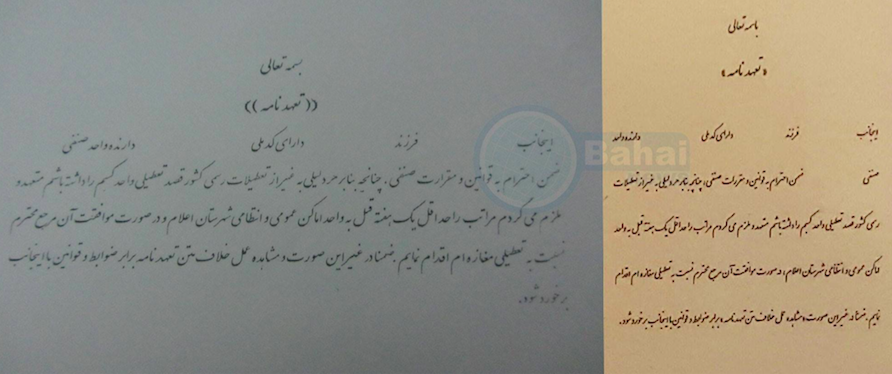 بسمه تعالی
(( تعهد نامه ))
اینجانب فرزند دارای کد ملی دارنده واحد صنفی
ضمن احترام به قوانین و مقرارت صنفی . چنانچه بنابر هر دلیلی به غیر از تعطیلات رسمی کشور قصد تعطیلی واحد کسبم را داشته باشم متعهد و
ملزم می گردم مراتب را حداقل یک هفته قبل به واحد اماکن عمومی و انتظامی شهرستان اعلام و در صورت موافقت آن مرجع محترم
نسبت به تعطیلی مغازه ام اقدام نمایم . ضمنا در غیر این صورت و مشاهده عمل خلاف متن تعهد نامه برابر ضوابط و قوانین با اینجانب
برخورد شود.
Bahai
باسمه تعالی
« تعهد نامه »
اینجانب فرزند دارای کد ملی دارنده واحد
صنفی ضمن احترام به قوانین و مقررات صنفی ، چنانچه بنابر هر دلیلی به غیر از تعطیلات
رسمی کشور قصد تعطیلی واحد کسبم را داشته باشم متعهد و ملزم می گردم مراتب را حداقل یک هفته قبل به واحد
اماکن عمومی و انتظامی شهرستان اعلام و در صورت موافقت آن مرجع محترم نسبت به تعطیلی مغازه ام اقدام
نمایم . ضمنا در غیر این صورت و مشاهده عمل خلاف متن تعهد نامه برابر ضوابط و قوانین با اینجانب برخورد شود .